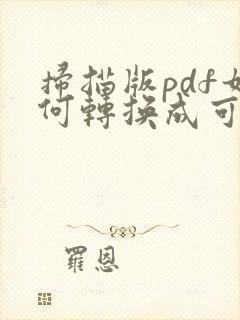 掃描版pdf如
何轉換成可
羅恩